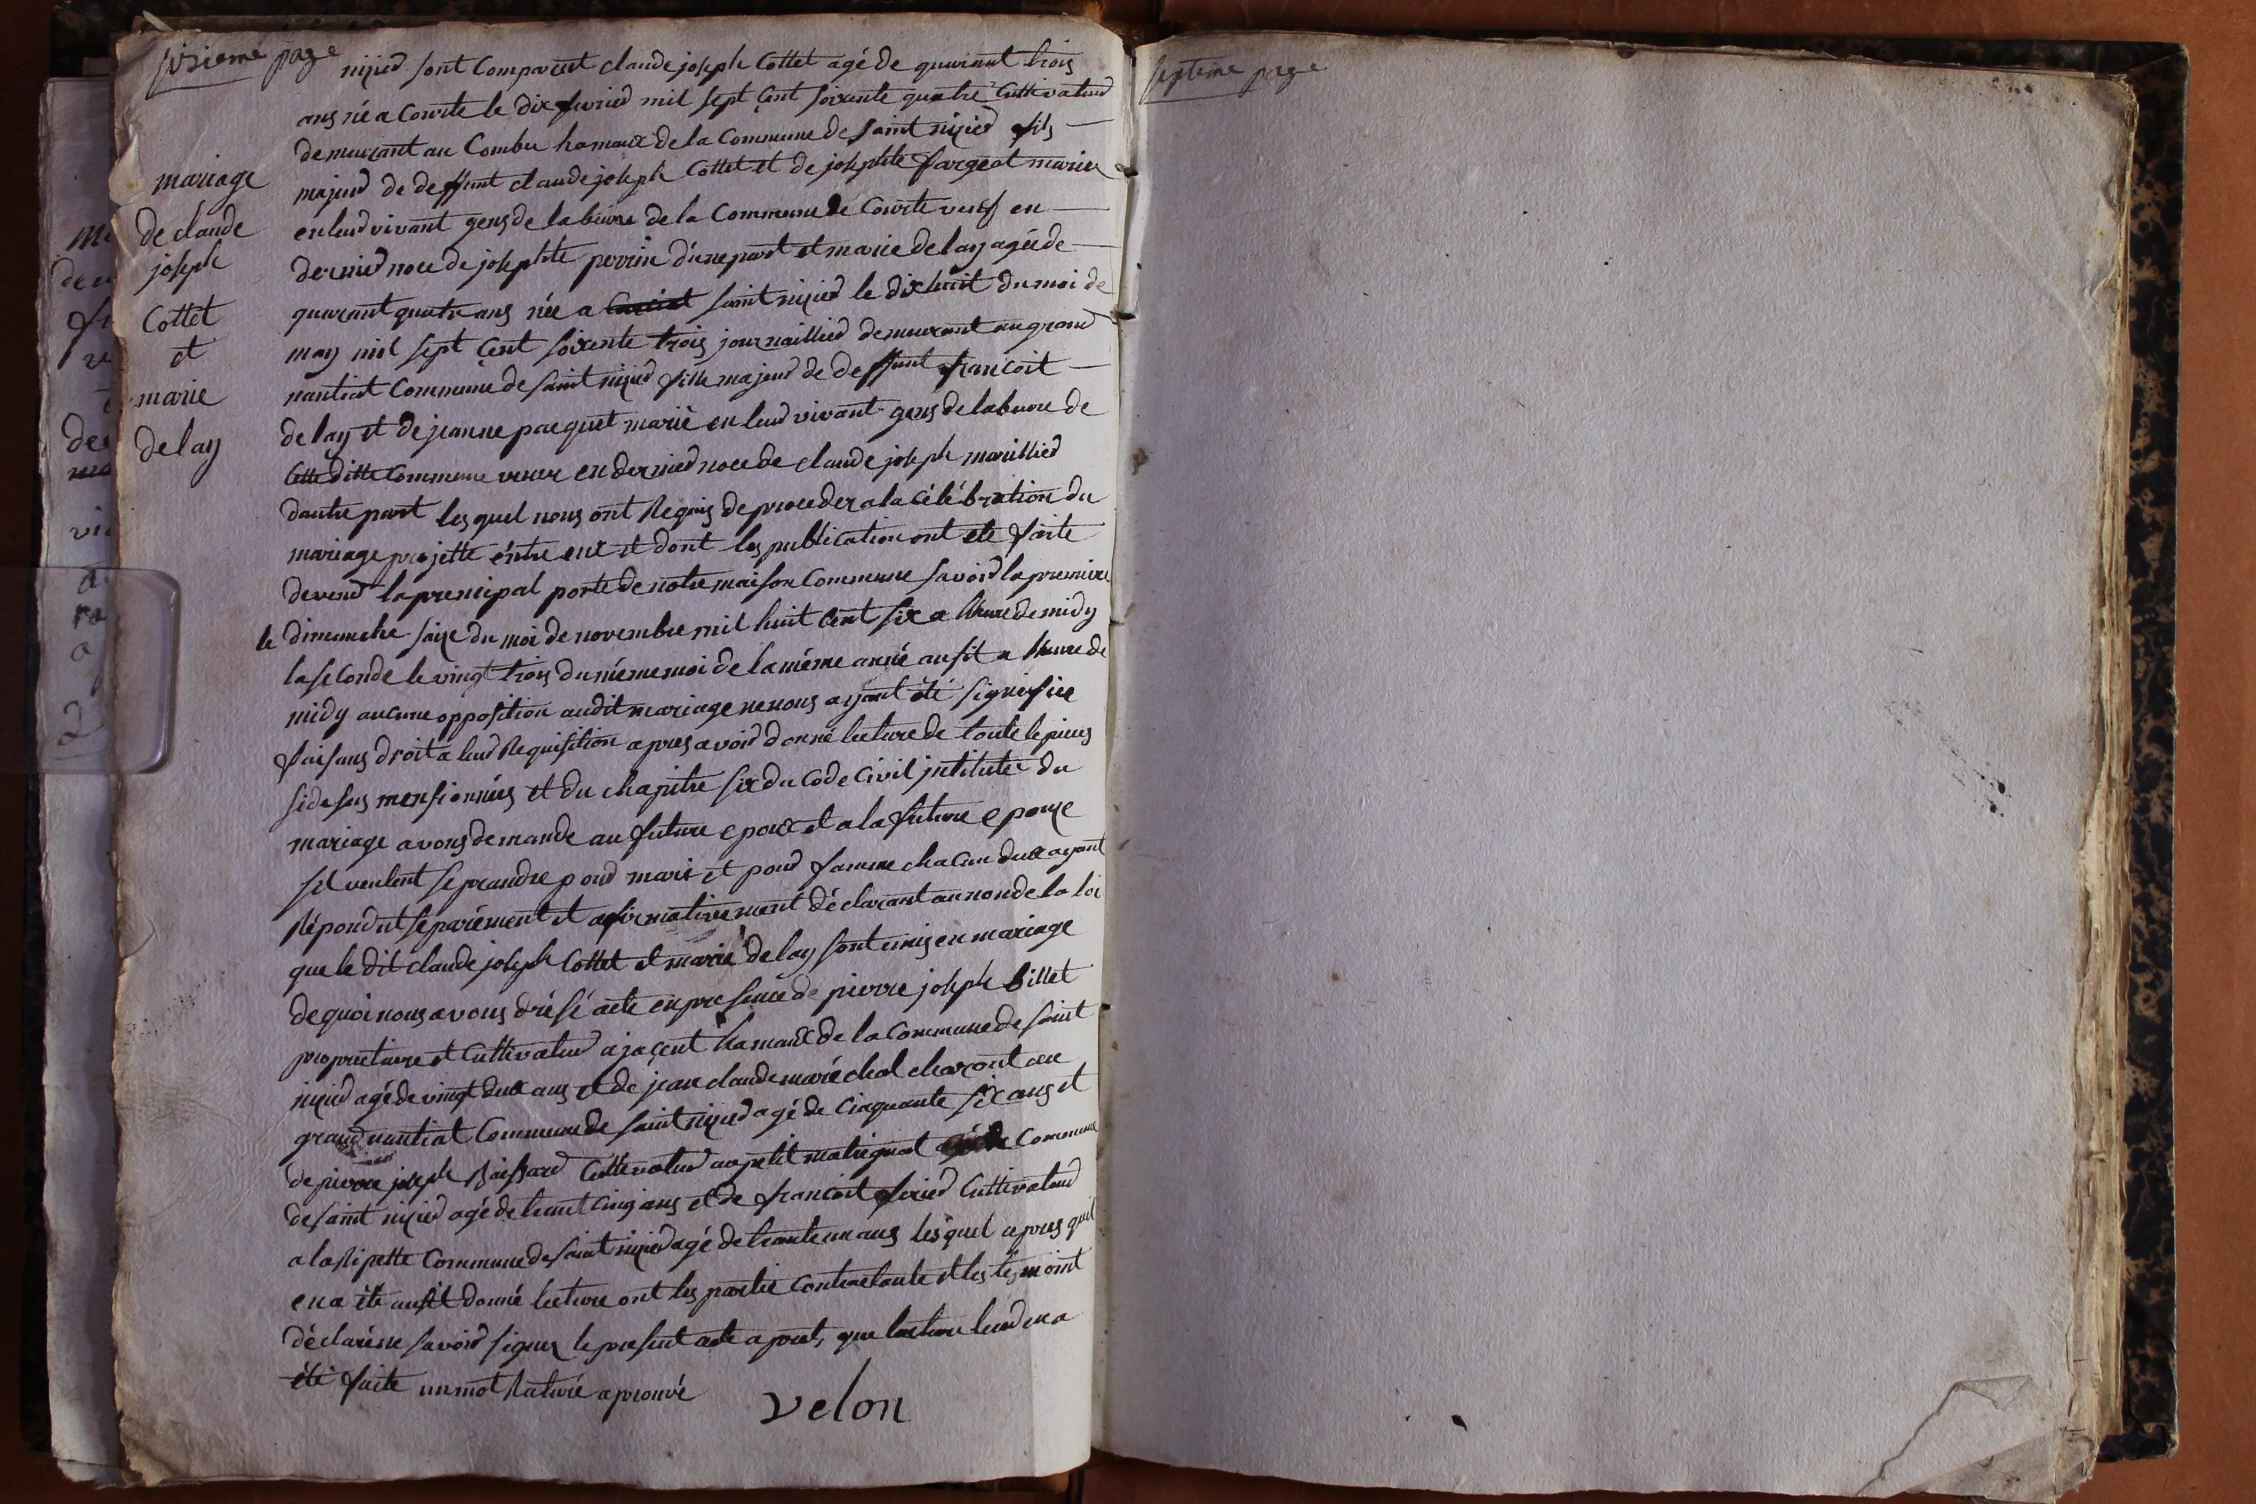 sisieme page
mariage
de claude
joseph
Cottet
et
marie
delay
nizied sont Comparut claude joseph Cottet agé de quarant trois
ans né a Courte le dix fevried mil sept Cent soixente quatre Cultivatud
demeurant au Combu hamaux de la Commune de saint nizied fils
majeud de deffunt claude joseph Cottet et de josephte fargeot mariez
en leud vivant gens de labeure de la Commune de Courte veuf en
dernied noce de josephte perrin d'une part et marie delay agée de
quarant quatre ans née a saint nizied le dix huit du moi de
may mil sept Cent soixente trois journaillied demeurant au grand
nantiat Commune de saint nizied fille majeud de deffunt francoit
delay et de jeanne pacquet marié en leud vivant gens de labeure de
Cette ditte Commune veuve en dernied noce de claude joseph manillied
dautre part les quel nous ont Requis de proceder a la célébration du
mariage projette éntre eux et dont les publication ont ete faite
devend la prencipal porte de notre maison Commune savoid la premiere
le dimanche saize du moi de novembre mil huit Cent six a lheure de midy
la seConde le vingt trois du méme moi de la méme anné ausit a lheure de
midy aucune opposition audit mariage ne nous ayant été signifiée
faisans droit a leud Requisition apres avoid donné lecture de toute le pieces
sidesus mensionnées et du chapitre six du Code Civil jntitulé du
mariage avons demande au future epoux et a la future epouze
sil veulent se prandre poud mari et poud famme chacun deux ayant
Répondut séparément et afirmativement déclarant au non de la loi
que le dit claude joseph Cottet et marie delay sont unis en mariage
de quoi nous avons drésé acte en presence de pierre joseph billet
proprietaire et Cultivatud ajaçent hamaux de la Commune de saint
nizied agé de vingt deux ans et de jean claude maréchal charont au
grand nantiat Commune de saint nizied agé de Cinquante six ans et
de pierre joseph Baissard Cultivatud au petit matignat Commune
de saint nizied agé de trant Cinq ans et de francoit feried Cultivatud
a la Ripette Commune de saint nizied agé de trante un ans les quel apres quil
en a été ausit donné lecture ont les partie contractante et les témoint
déclaré ne savoid signez le present acte apres, que lecture leud en a
été faite un mot Raturé aprouvé
velon
septieme page